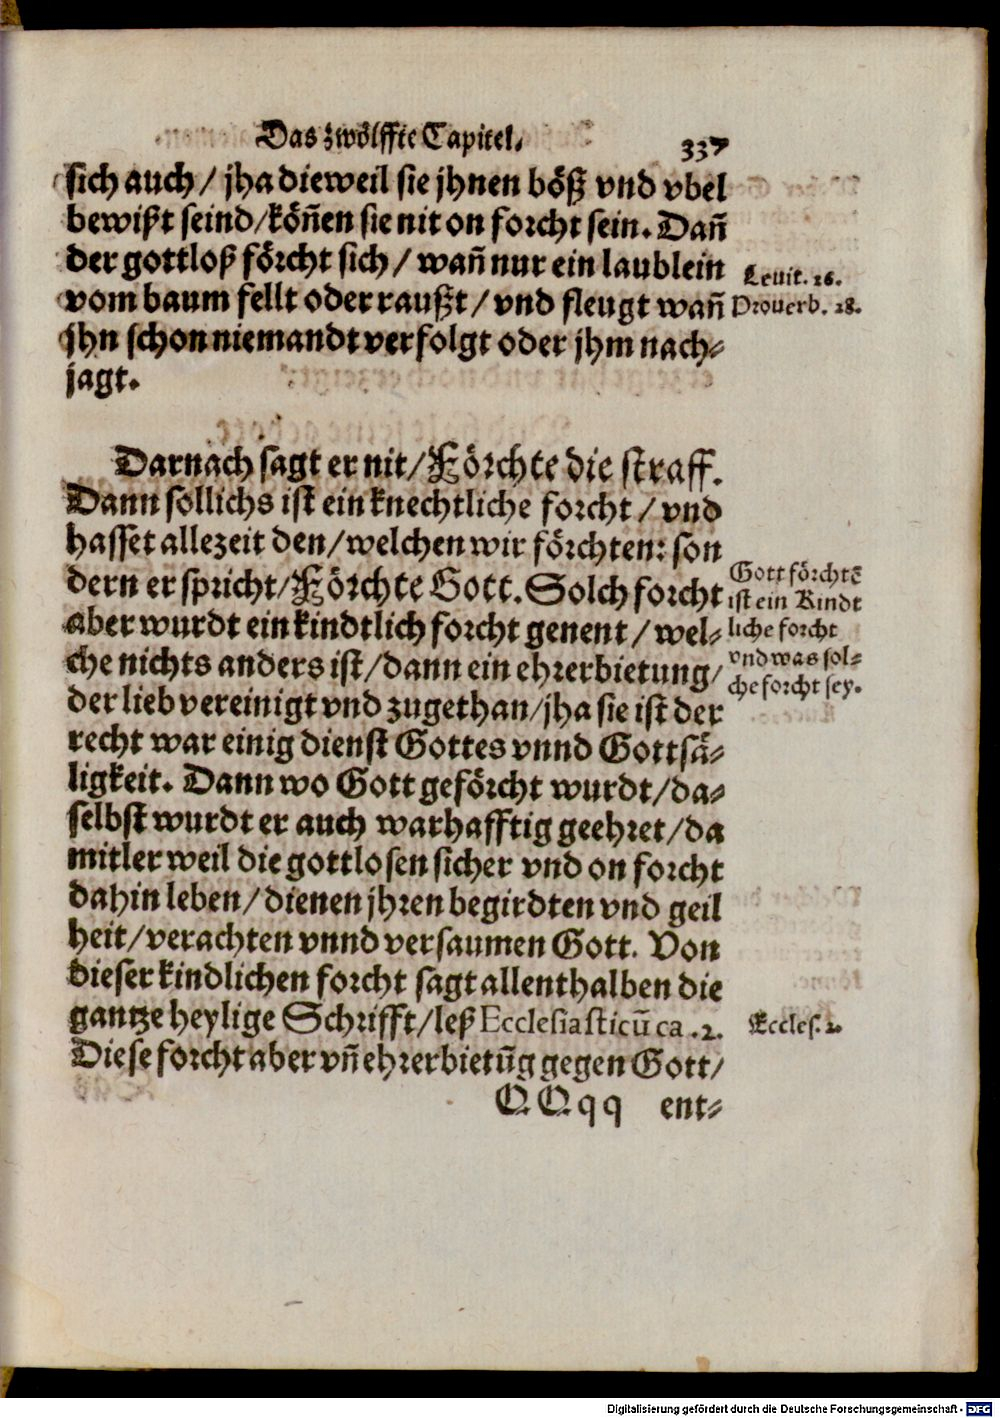 Das zwölffte Capitel.
337
sich auch / jha dieweil sie jhnen böß vnd vbel
bewißt seind/köñen sie nit on forcht sein. Dañ
der gottloß förcht sich / wañ nur ein laublein
vom baum fellt oder raußt / vnd fleugt wañ
jhn schon niemandt verfolgt oder jhm nach-
jagt.
Leuit. 26.
Prouerb. 28.
Darnach sagt er nit/Förchte die straff.
Dann sollichs ist ein knechtliche forcht / vnd
hasset allezeit den/welchen wir förchten: son
dern er spricht/Förchte Gott. Solch forcht
aber wurdt ein kindtlich forcht genent / wel-
che nichts anders ist/dann ein ehrerbietung/
der lieb vereinigt vnd zugethan/jha sie ist der
recht war einig dienst Gottes vnnd Gottsä-
ligkeit. Dann wo Gott geförcht wurdt/da-
selbst wurdt er auch warhafftig geehret/da
mitler weil die gottlosen sicher vnd on forcht
dahin leben/dienen jhren begirdten vnd geil
heit/verachten vnnd versaumen Gott. Von
dieser kindlichen forcht sagt allenthalben die
gantze heylige Schrifft/leß Ecclesiasticũ ca .2.
Diese forcht aber vñ ehrerbietũg gegen Gott/
Gott förchtē
ist ein Kindt
liche forcht
vnd was sol-
che forcht sey.
Eccles. 2.
QQqq ent-
Digitalisierung gefördert durch die Deutsche Forschungsgemeinschaft - DFG